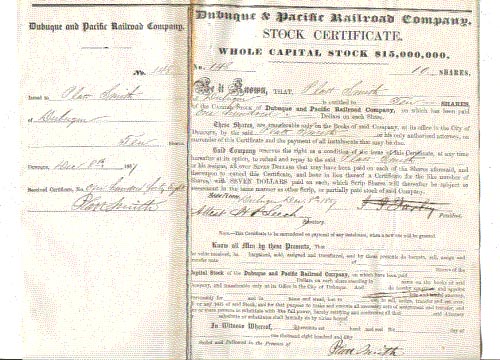 Dubuque and Pacific Railroad Company.
No. 148
Issued to Plat Smith
of Dubuque
Ten Shares
Dubuque, Dec. 8th 1857
Received Certificate, No. One hundred forty Eight
Plat Smith
Dubuque & Pacific Railroad Company.
STOCK CERTIFICATE.
WHOLE CAPITAL STOCK $15,000,000.
No. 148 10 SHARES.
Be it Known, THAT Plat Smith
of Dubuque is entitled to Ten SHARES
of the Capital Stock of Dubuque and Pacific Railroad Company, on which has been paid
One Hundred Dollars on each Share.
These Shares, are transferable only on the Books of said Company, at its office in the City of
Dubuque, by the said Plat Smith or his only authorized attorney, on
surrender of this Certificate and the payment of all instalments that may be due.
Said Company reserves the right as a condition of the issue of this Certificate, at any time
hereafter at its option, to refund and repay to the said Plat Smith
or his assigns, all over Seven Dollars that may have been paid on each of the Shares aforesaid, and
thereupon to cancel this Certificate, and issue in lieu thereof a Certificate for the like number of
Shares, with SEVEN DOLLARS paid on each, which Scrip Shares will thereafter be subject to
assessment in the same manner as other Scrip, or partially paid stock of said Company.
Dubuque Dec. 8th 1857
Attest Secretary. President.
Note.—This Certificate to be surrendered on payment of any instalment, when a new one will be granted.
Know all Men by these Presents, That
for value received, bargained, sold, assigned and transferred, and by these presents do bargain, sell, assign and
transfer unto
Shares of the
Capital Stock of the Dubuque and Pacific Railroad Company, on which have been paid
Dollars on each share standing in name on the books of said
Company, and transferable only at its Office in the City of Dubuque. And do hereby constitute and appoint
true and lawful attorney,
irrevocably for and in name and stead, but to use to sell, assign, transfer and set over
all or any part of said Stock, and for that purpose to make and execute all necessary acts of assignment and transfer, and
one or more persons to substitute with like full power, hereby ratifying and confirming all that said Attorney or
substitute or substitutes shall lawfully do by virtue hereof.
In Witness Whereof, hereunto set hand and seal the day of
one thousand eight hundred and fifty
Sealed and Delivered in the Presence of
Plat Smith